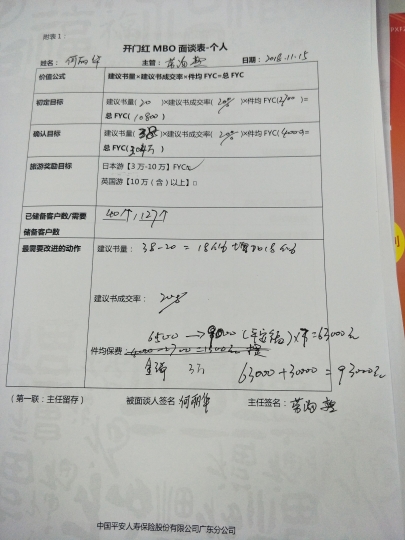 附表1：
开门红 MBO 面谈表-个人
姓名： 何丽华 主管： 日期： 2018.11.15
价值公式 建议书量×建议书成交率×件均 FYC=总 FYC
初定目标 建议书量( 20 )×建议书成交率( 20% )×件均 FYC(2700 )=
总 FYC( 10800 )
确认目标 建议书量( 38 )×建议书成交率( 20% )×件均 FYC( 4000 )=
总 FYC( 3.04万 )
旅游奖励目标 日本游【3 万-10 万】FYC☑
英国游【10 万（含）以上】□
已储备客户数/需要
储备客户数 40个，127个
最需要改进的动作 建议书量： 38-20 = 18份 增加18份
建议书成交率： 20%
6500 → 9000 (平安福) × 7 = 63000元
件均保费：
3万 63000+30000 = 93000元
（第一联：主任留存） 被面谈人签名 何丽华 主任签名：
中国平安人寿保险股份有限公司广东分公司